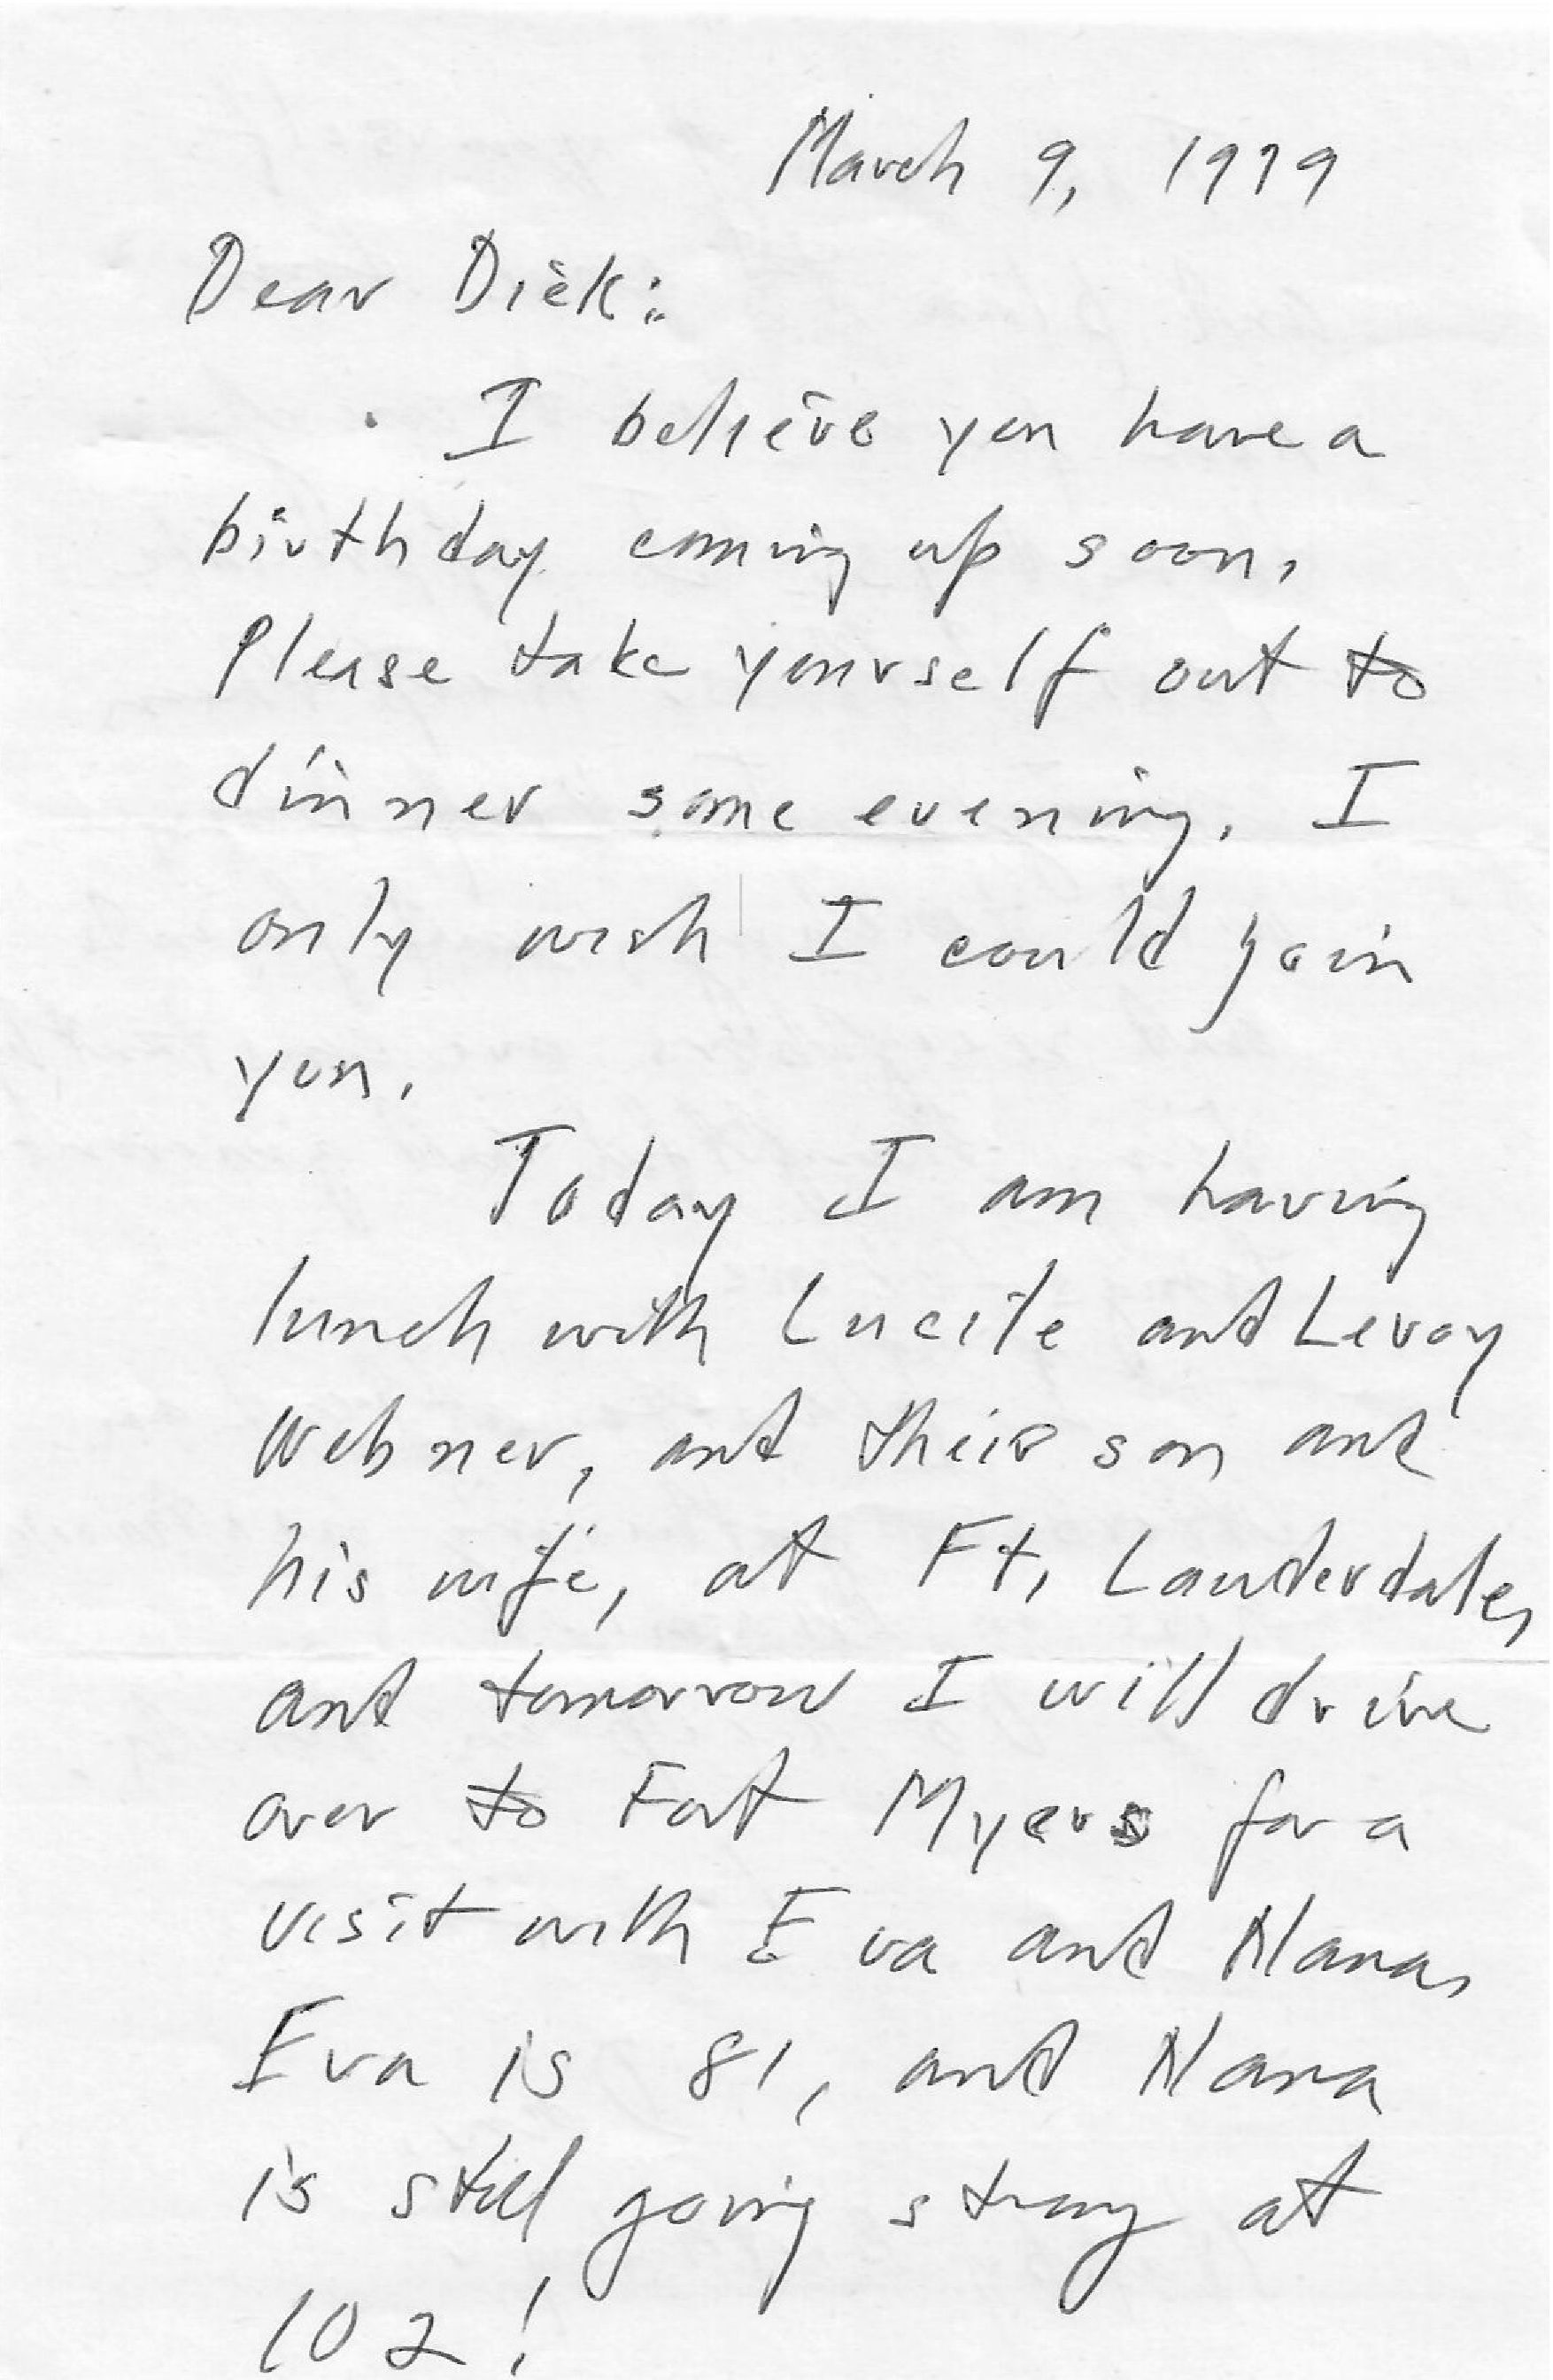 March 9, 1979
Dear Dick:
I believe you have a
birthday coming up soon.
Please take yourself out to
dinner some evening. I
only wish I could join
you.
Today I am having
lunch with Lucile and Leroy
Webner, and their son and
his wife, at Ft. Lauderdale,
and tomorrow I will drive
over to Fort Myers for a
visit with Eva and Nana.
Eva is 81, and Nana
is still going strong at
102!